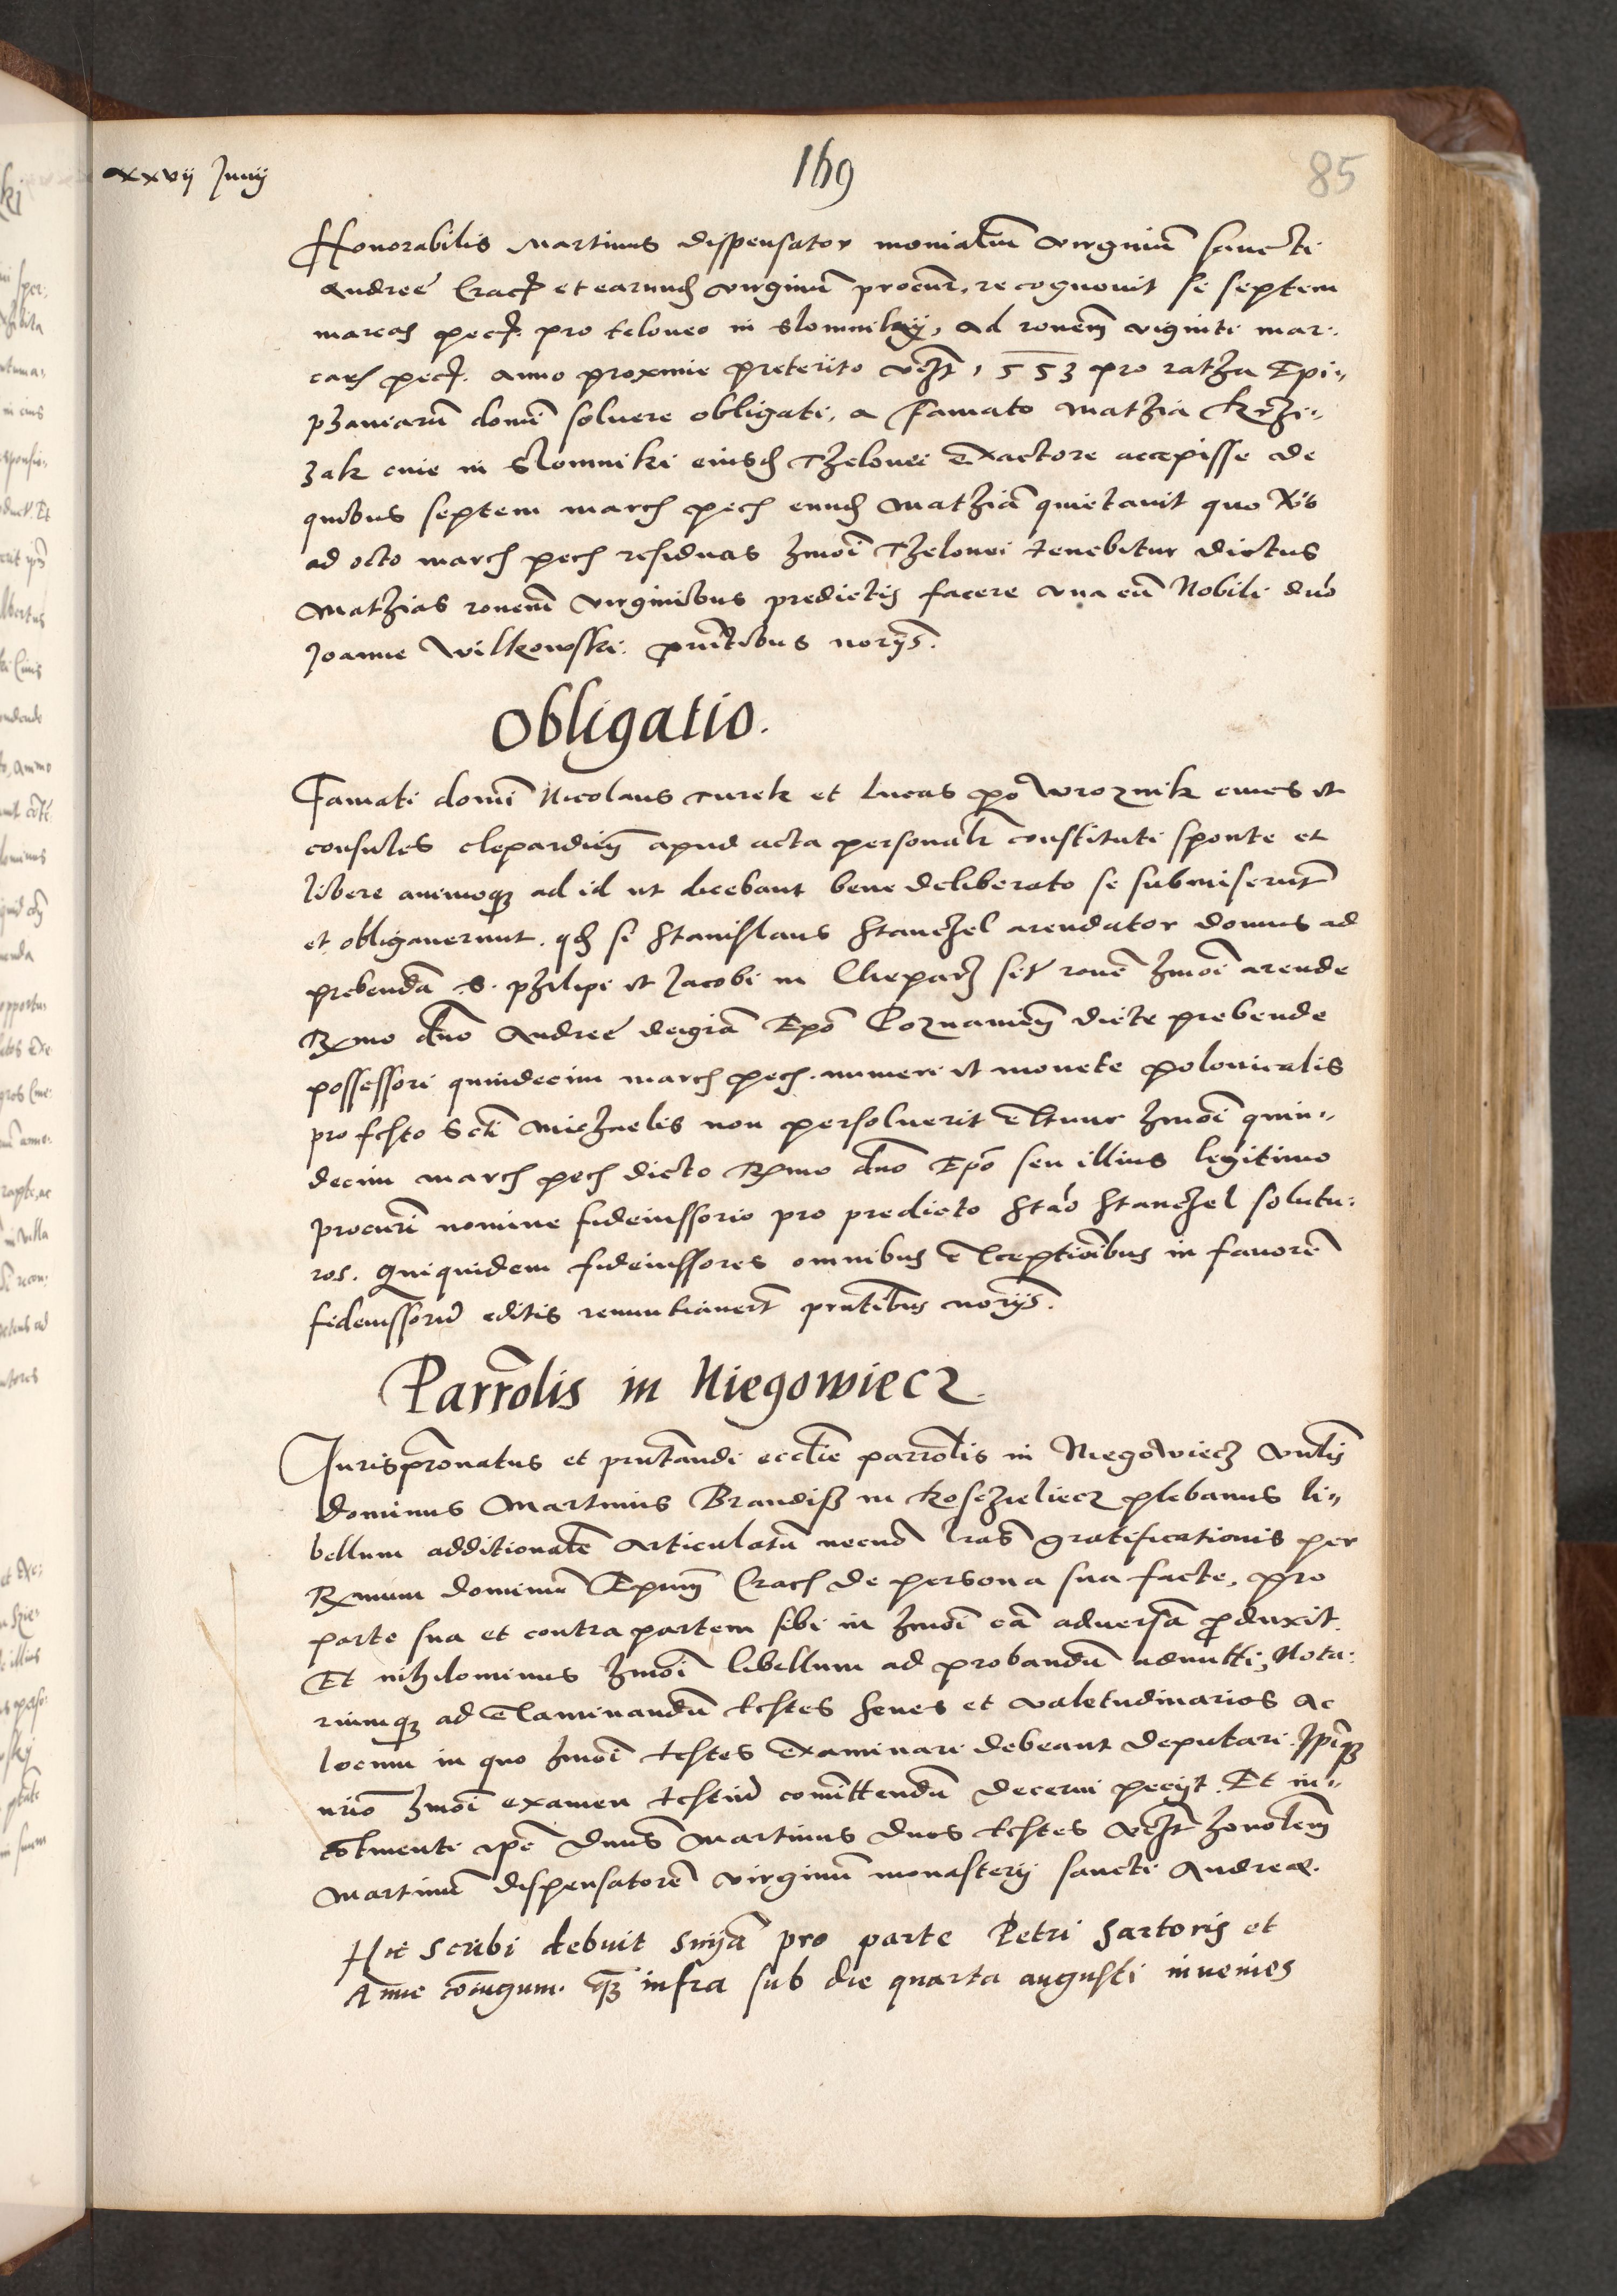 xxvij Junij
169
85
Honorabilis Martinus dispensator monialiũ virginũ sancti
Andree Crac et earund virginũ procur, recognovit se septem
marcas pec pro teloneo in Slomnikij, ad ronem viginti mar
cars pec. Anno proxime preterito 1553 pro ratha Epi
phaniarũ domĩ solvere obligati, a famato Mathia
zak cive in Slomniki eiusd Thelonei Exactore accepisse de
quibus septem march pech eund Mathiã quietavit quo
ad octo march pech residuas hmoĩ Thelonei tenebitur dictus
Mathias ronem virginibus predictis facere una cũ Nobili dno
Joanne Wilkowski. pñtibus norijs.
Obligatio.
Famati domĩ Nicolaus Turek et Lucas powroznik cives et
consules clepardieñ apud acta personalr constituti sponte et
libere animoq ad id ut dicebant bene deliberato se submiserũt
et obligaverunt. qd si Stanislaus Stanchel arendator domus ad
prebendã S. philipi et Jacobi in Cleparz sit ronẽ hmoĩ arende
Rmo dno Andree deigrã Epo Poznanieñ dicte prebende
possessori quindecim march pech. numeri et monete polonicalis
pro festo Scti Michaelis non persolverit Extunc hmoĩ quin
decim march pech dicto Rmo dno Epo seu illius legitimo
procurĩ nomine fideiussorio pro predicto Stao Stanchel solutu
ros. Quiquidem fideiussores omnibus exceptioibus in favorẽ
fideiussorũ editis renuntiavert pñtibus norijs.
Parrolis in Niegowiecz
Jurispronatus et pñtandi ecclie parrolis in Niegowiecz
dominus Martinus Brandisz in Koscieliecz plebanus li
bellum additionalẽ Articulatũ necno lras gratificationis per
Rmum dominũ Epum Crach de persona sua facte, pro
parte sua et contra partem sibi in hmoĩ cã adversã produxit.
Et nihilominus hmoĩ libellum ad probandũ admitti, Nota
riumq ad Examinandũ testes senes et valetudinarios Ac
locum in quo hmoĩ testes Examinari debeant deputari.
nrio hmoĩ examen testiũ comittendũ decerni pecijt. Et in
ipẽ Dnus Martinus duos testes honolem
Martinũ dispensatorẽ virginũ monasterij sancti Andreæ.
Hic scribi debuit snia pro parte Petri Sartoris et
Anne coiugum. infra sub die quarta augusti invenies